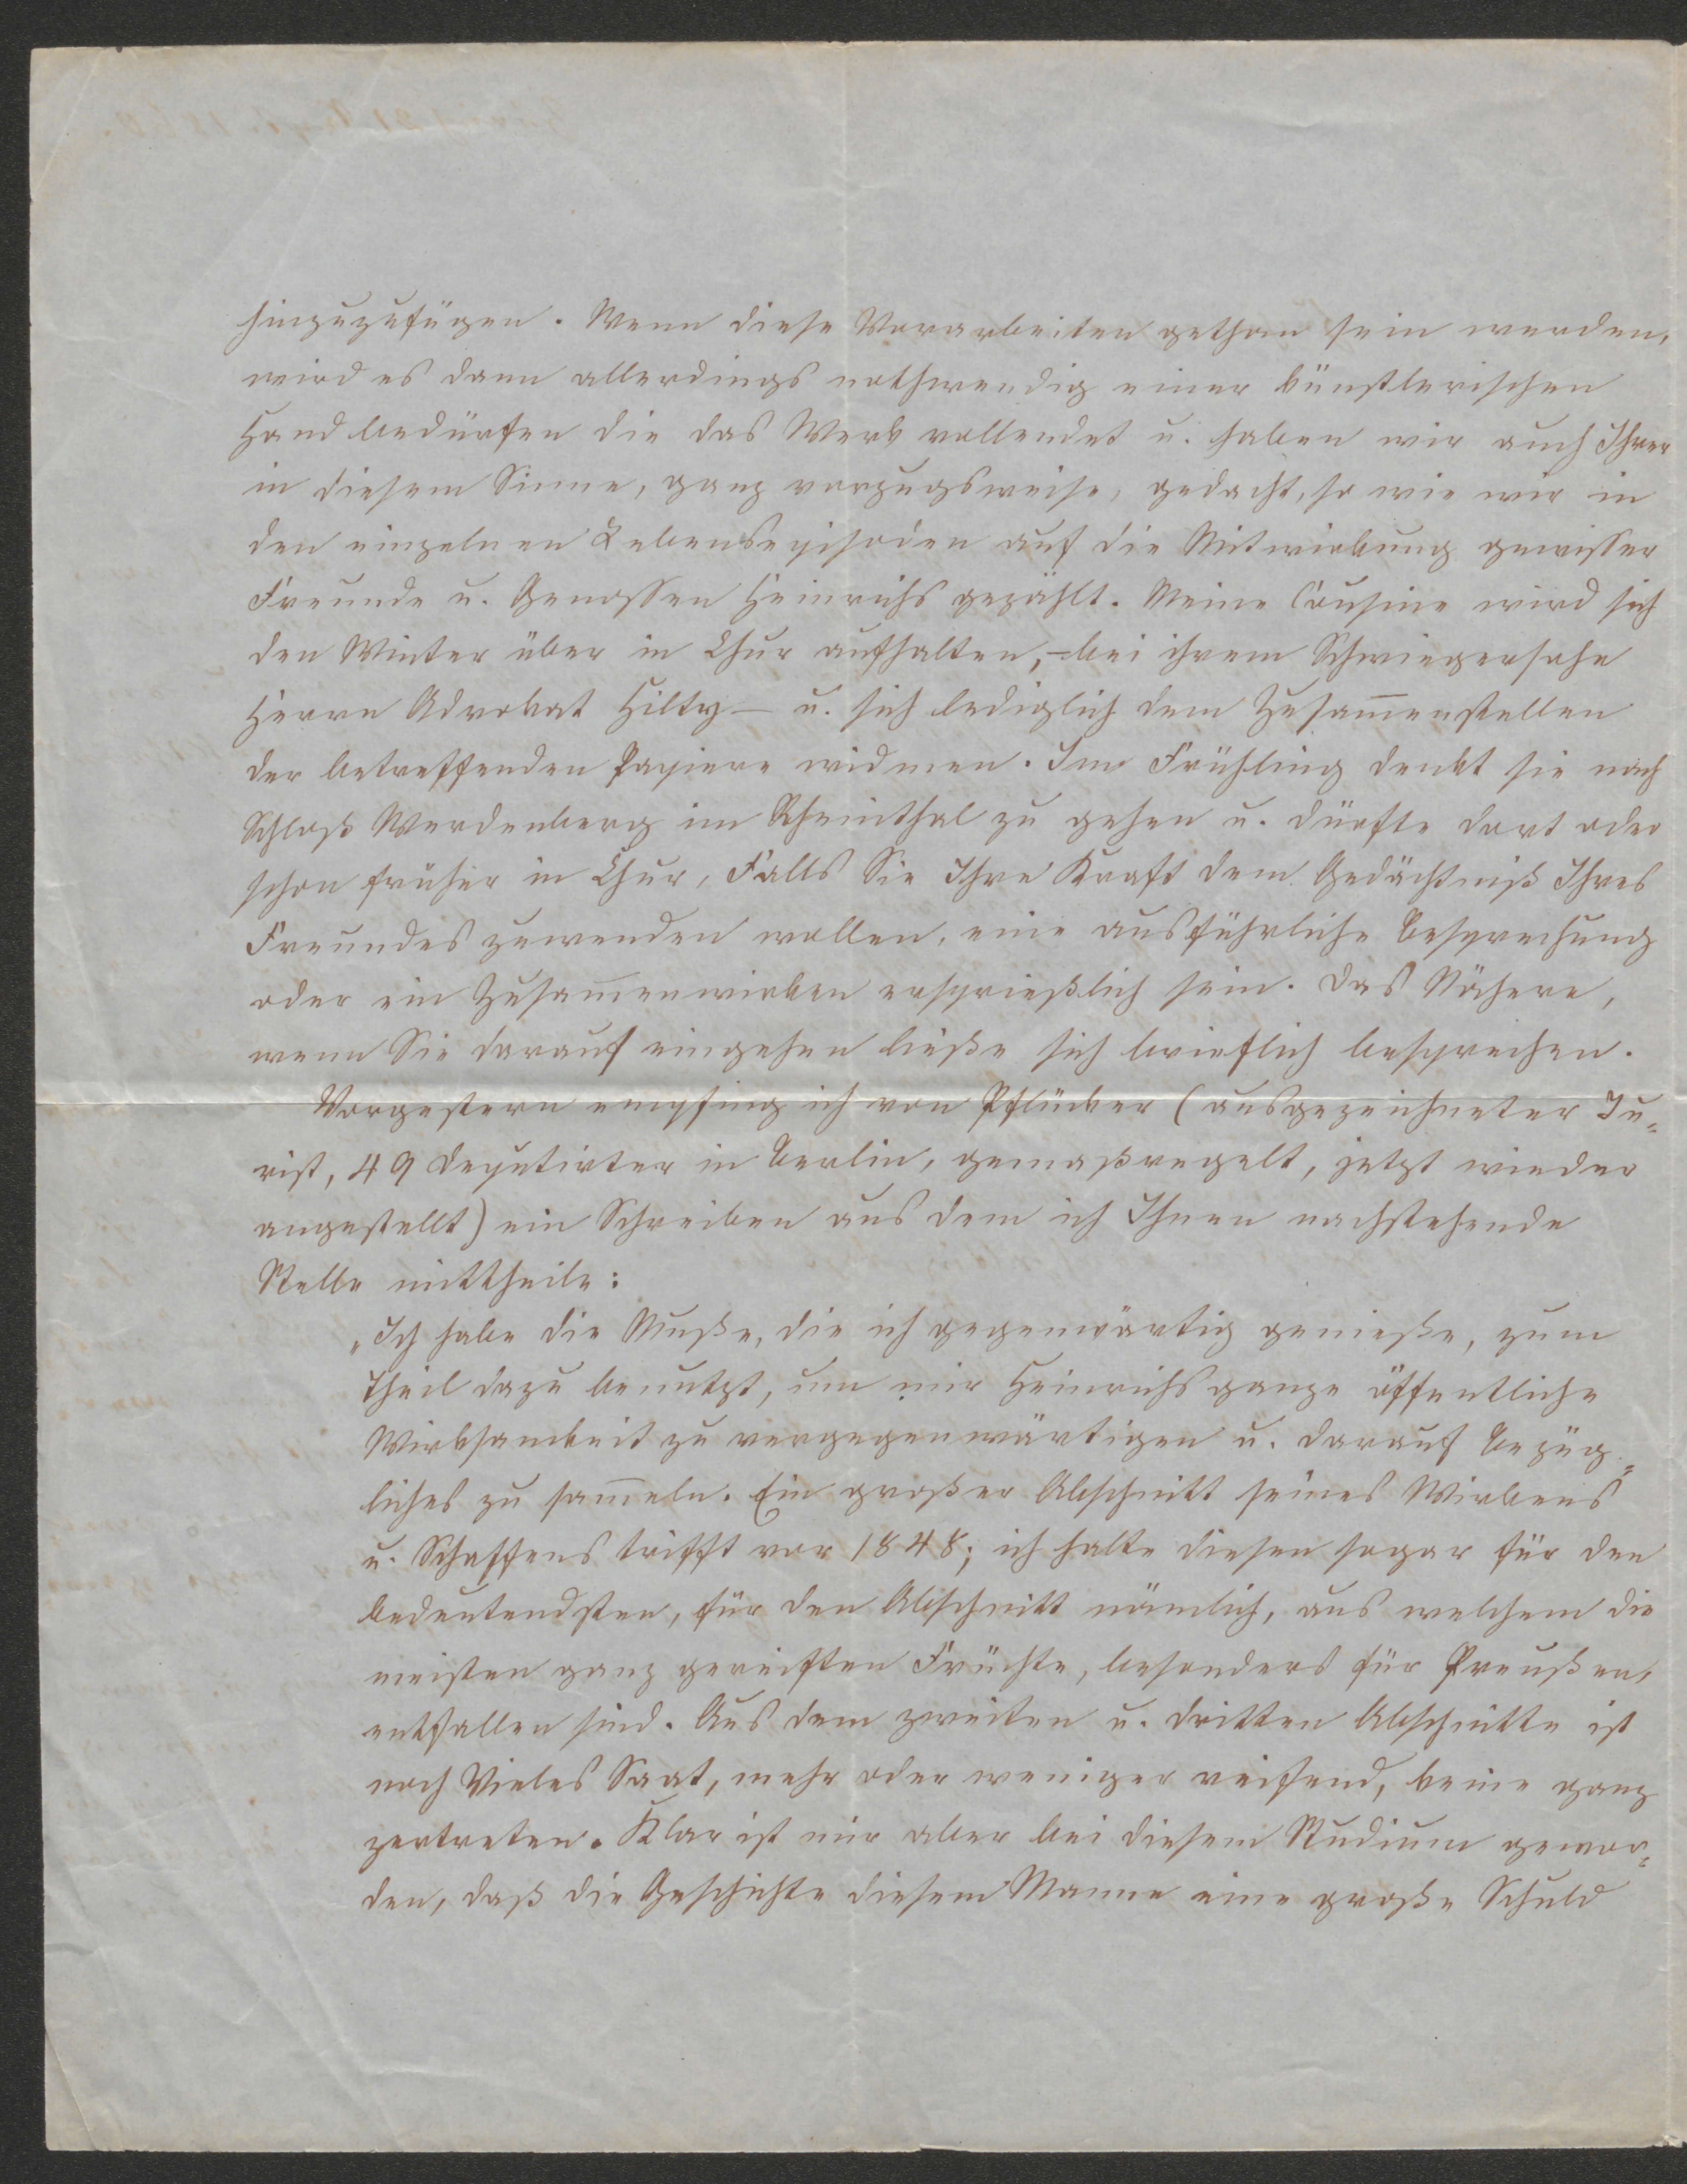 hinzuzufügen. Wenn diese Vorarbeiten gethan sein werden,
wird es dann allerdings nothwendig einer künstlerischen
Hand bedürfen die das Werk vollendet u. haben wir auch Ihrer
in diesem Sinne, ganz vorzugsweise, gedacht, so wie wir in
den einzelnen Lebensepisoden auf die Mitwirkung gewisser
Freunde u. Genossen Heinrichs gezählt. Meine Cousine wird sich
den Winter über in Chur aufhalten, – bei ihrem Schwiegersohn
Herrn Advokat Hilty – u. sich lediglich dem Zusam̄enstellen
der betreffenden Papiere widmen. Im Frühling denkt sie nach
Schloß Werdenberg im Rheinthal zu gehen u. dürfte dort oder
schon früher in Chur, Falls Sie Ihre Kraft dem Gedächtniß Ihres
Freundes zuwenden wollen, eine ausführliche Besprechung
oder ein Zusam̄enwirken ersprießlich sein. Das Nähere,
wenn Sie darauf eingehen ließe sich brieflich besprechen.
Vorgestern empfing ich von Pflücker (ausgezeichneter Ju=
rist, 49 Deputirter in Berlin, gemaßregelt, jetzt wieder
angestellt) ein Schreiben aus dem ich Ihnen nachstehende
Stelle mittheile:
„Ich habe die Muße, die ich gegenwärtig genieße, zum
Theil dazu benutzt, um mir Heinrichs ganze öffentliche
Wirksamkeit zu vergegenwärtigen u. darauf Bezüg=
liches zu sam̄eln. Ein großer Abschnitt seines Wirkens
u. Schaffens trifft vor 1848; ich halte diesen sogar für den
bedeutendsten, für den Abschnitt nämlich, aus welchem die
meisten ganz gereiften Früchte, besonders für Preußen,
entfallen sind. Aus dem zweiten u. dritten Abschnitte ist
noch Vieles Saat, mehr oder weniger reifend, keine ganz
zertreten. Klar ist mir aber bei diesem Studium gewor=
den, daß die Geschichte diesem Manne eine große Schuld